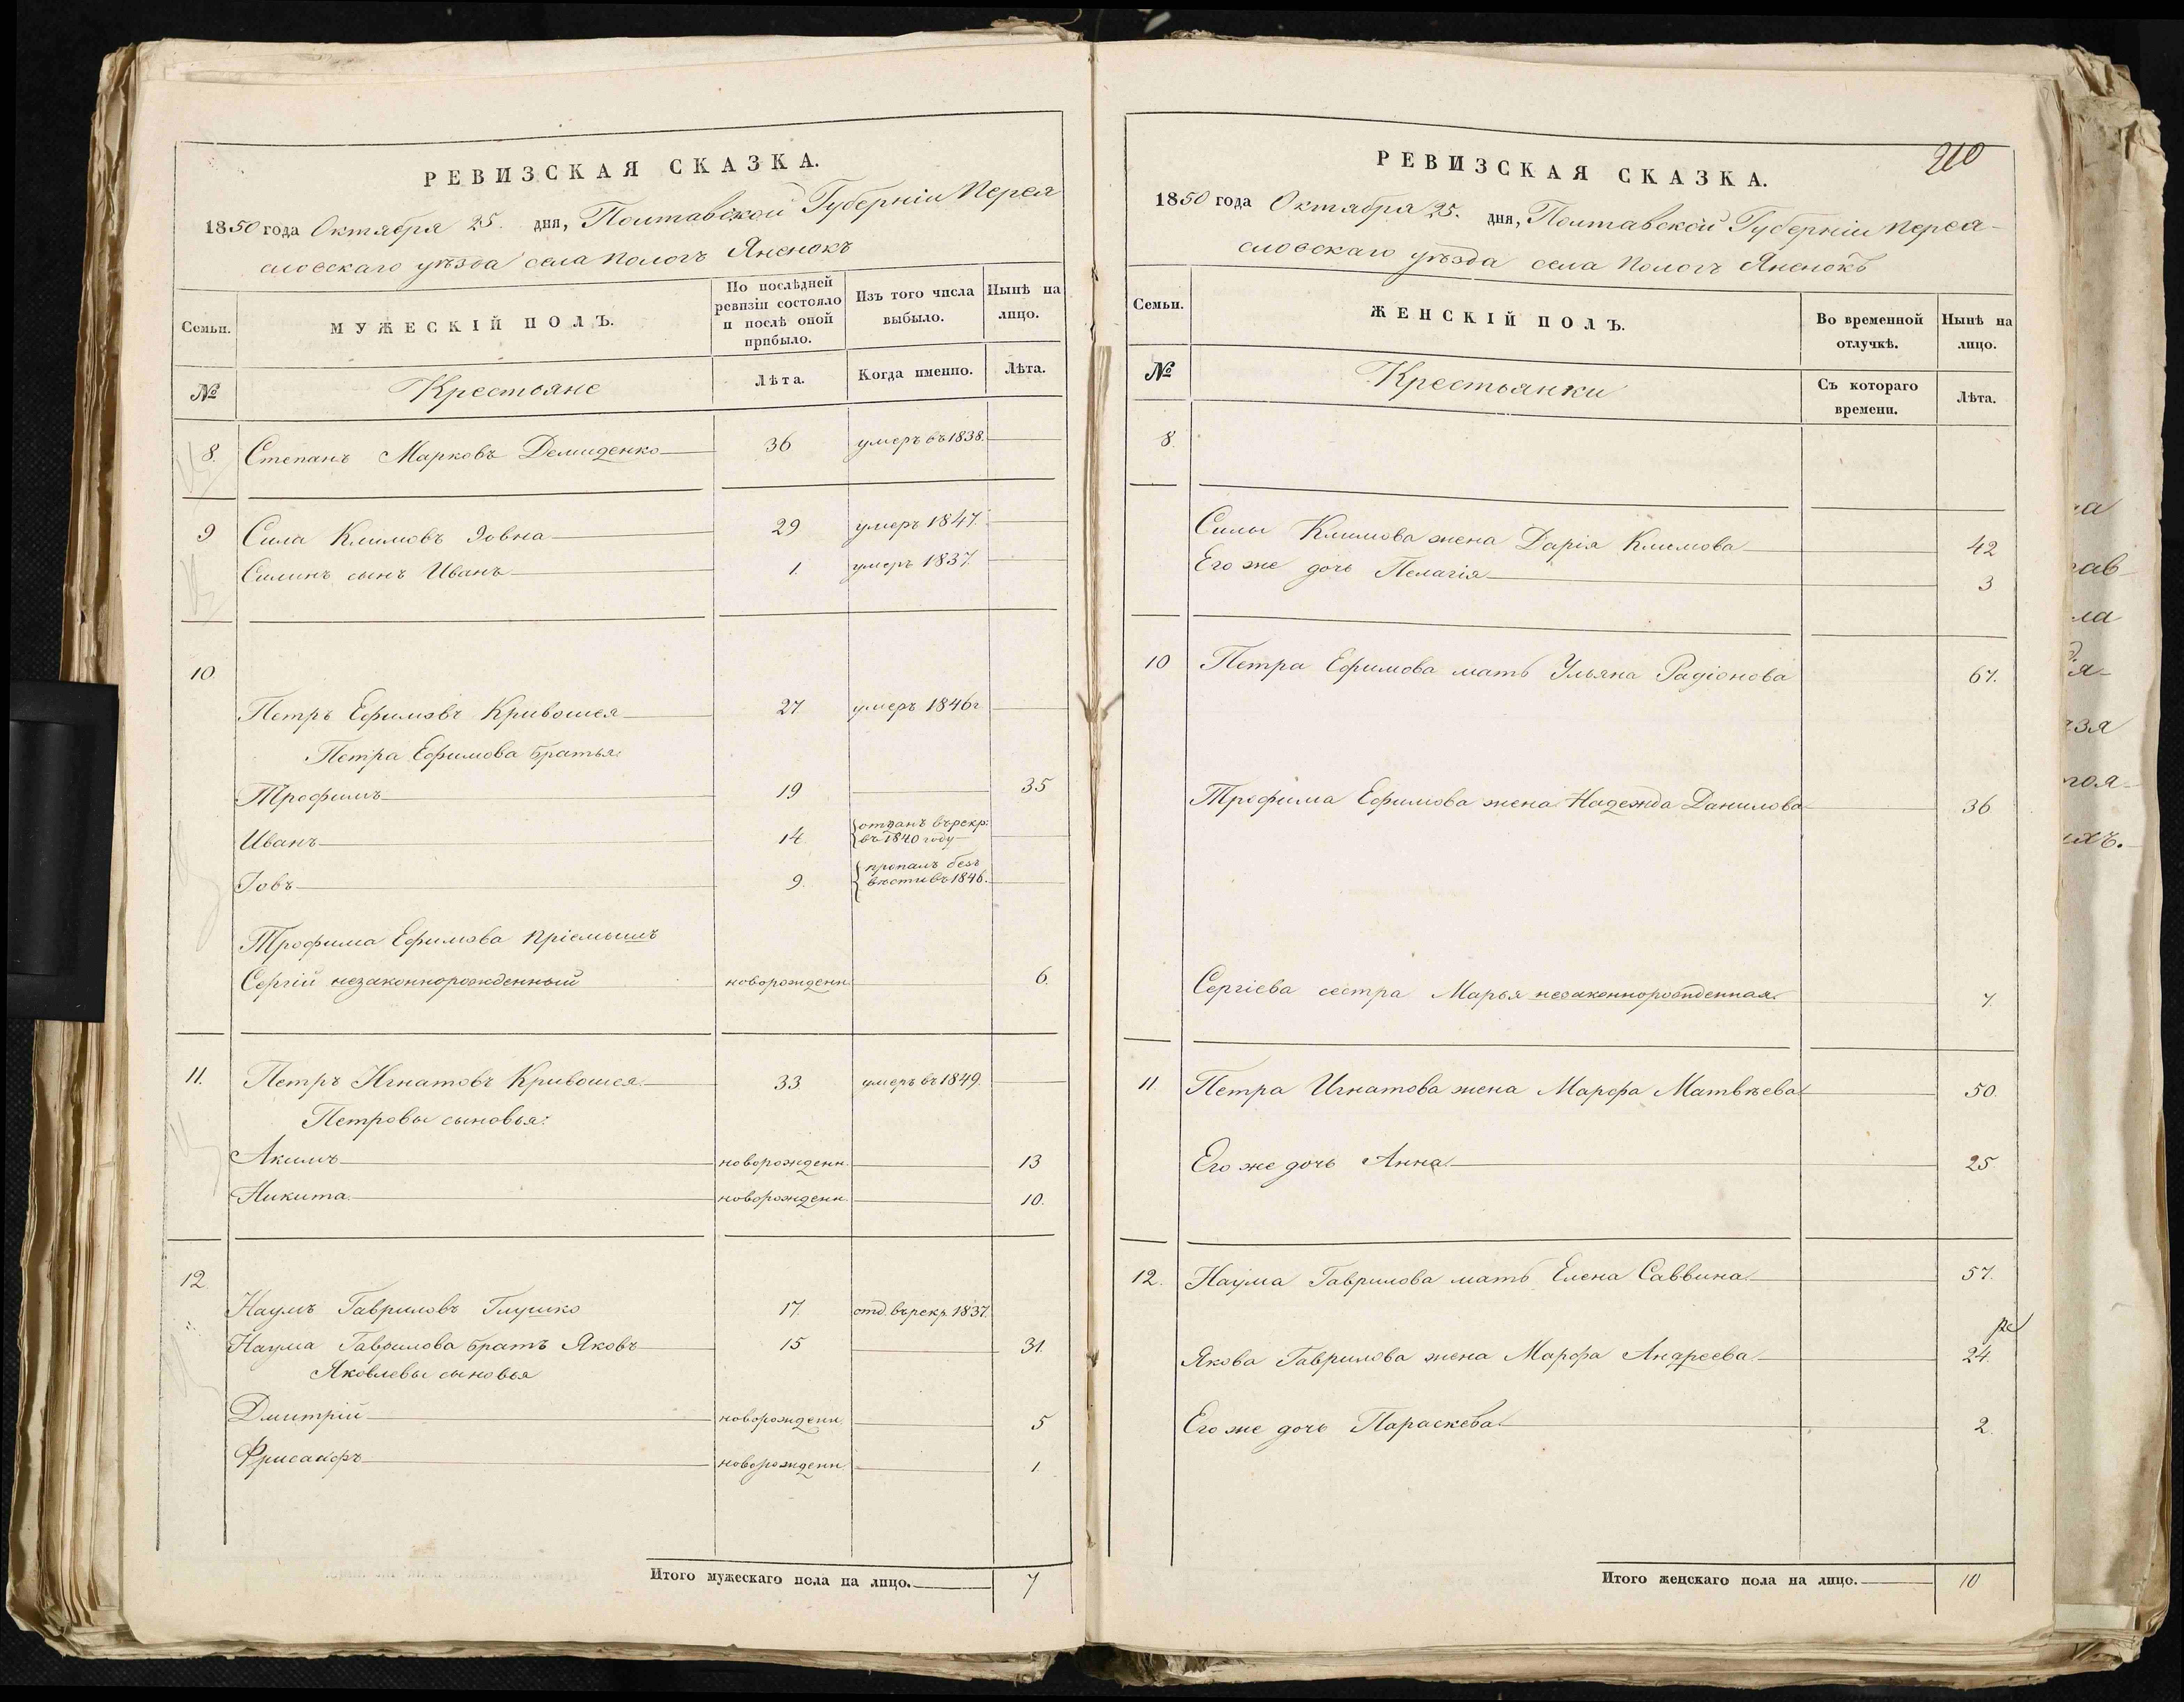 РЕВИЗСКАЯ СКАЗКА.
1850 года Октября 25. дня, Полтавской Губерніи Перея
словскаго уѣзда села Пологъ Яненокъ
Семьи.
МУЖЕСКІЙ ПОЛЪ.
По послѣдней ревизіи состояло и послѣ оной прибыло.
Изъ того числа выбыло.
Нынѣ на лицо.
№
Крестьяне
Лѣта.
Когда именно.
Лѣта.
8. Степанъ Марковъ Демиденко 36 умеръ въ 1838.
9 Сила Климовъ Іовна 29 умеръ 1847.
Силинъ сынъ Иванъ 1. умеръ 1837.
10
Петръ Ефимовъ Кривошея 27 умеръ 1846г.
Петра Ефимова братья
Трофимъ 19 35
Иванъ 14 отданъ върекр:
въ 1840 году
Іовъ 9. пропалъ безъ
вѣстивъ1846.
Трофима Ефимова пріемышъ
Сергій незаконнорожденный новорожденн. 6.
11. Петръ Игнатовъ Кривошея 33 умеръ въ 1849.
Петровы сыновья:
Акимъ новорожденн. 13
Никита новорожденн. 10.
12.
Наумъ Гавриловъ Глушко 17. отд. върекр. 1837.
Наума Гаврилова братъ Яковъ 15 31.
Яковлевы сыновья
Дмитрій новорожденн. 5
Хрисанфъ новорожденн. 1.
Итого мужескаго пола на лицо. 7
210
РЕВИЗСКАЯ СКАЗКА.
1850 года Октября 25. дня, Полтавской Губерніи Перея-
словскаго уѣзда села Пологъ Яненокъ
Семьи.
ЖЕНСКІЙ ПОЛЪ.
Во временной отлучкѣ.
Нынѣ на лицо.
№
Крестьянки
Съ котораго времени.
Лѣта.
8.
Силы Климова жена Дарія Климова 42
Его же дочь Пелагія 3
10 Петра Ефимова мать Ульяна Радіонова 67.
Трофима Ефимова жена Надежда Данилова 36
Сергіева сестра Марья незаконнорожденная. 7.
11 Петра Игнатова жена Марфа Матвѣева 50.
Его же дочь Анна 25
12. Наума Гаврилова мать Елена Саввина 57.
Якова Гаврилова жена Марфа Андреева 24.
Его же дочь Параскева 2.
Итого женскаго пола на лицо. 10